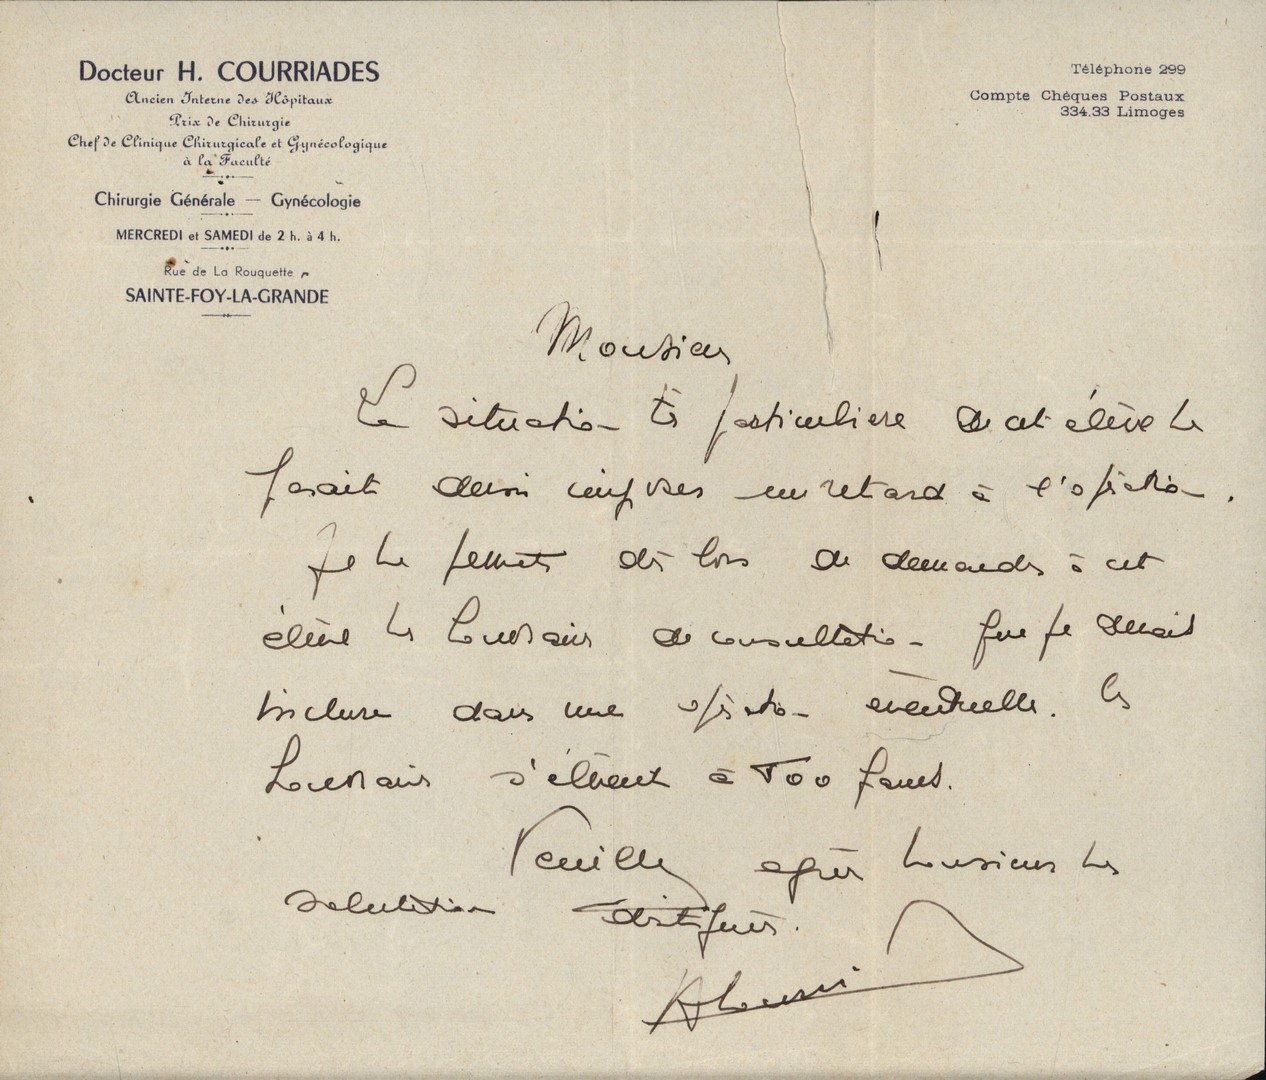 Docteur H. COURRIADES
Ancien Interne des Hôpitaux
Prix de Chirurgie
Chef de Clinique Chirurgicale et Gynécologique
à la Faculté
Chirurgie Générale — Gynécologie
MERCREDI et SAMEDI de 2 h. à 4 h.
Rue de La Rouquette
SAINTE-FOY-LA-GRANDE
Téléphone 299
Compte Chèques Postaux
334.33 Limoges
Monsieur
La situation très particulière de cet élève me
parait devoir imposer un retard à l'opération.
Je me permets dès lors de demander à cet
élève les honoraires de consultation que je devais
inclure dans une opération éventuelle. Les
honoraires s'élèvent à 700 francs.
Veuillez agréer Monsieur mes
salutations distinguées.